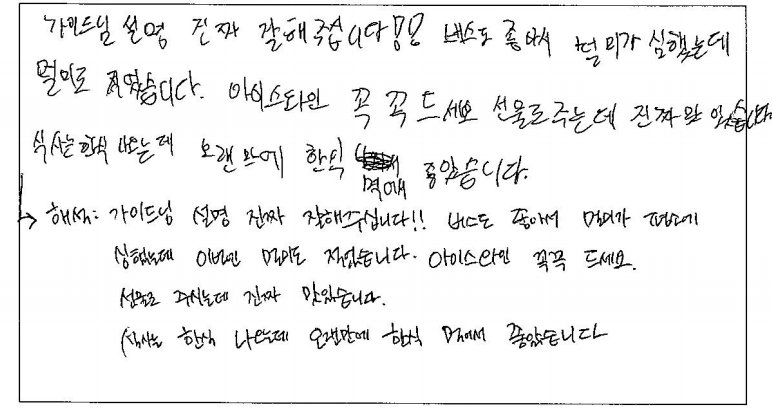 가이드님 설명 진짜 잘해줍니다!! 버스도 좋아서 멀미가 심했는데
멀미도 적었습니다. 아이스와인 꼭 꼭 드세요 선물로주는데 진짜 맛 있습니다.
식사는 한식 나오는데 오랜만에 한식 먹어서 좋았습니다.
→ 해석: 가이드님 설명 진짜 잘해주십니다!! 버스도 좋아서 멀미가 평소에
심했는데 이번엔 멀미도 적었습니다. 아이스와인 꼭꼭 드세요.
선물로 주시는데 진짜 맛있습니다.
식사는 한식 나오는데 오랜만에 한식 먹어서 좋았습니다